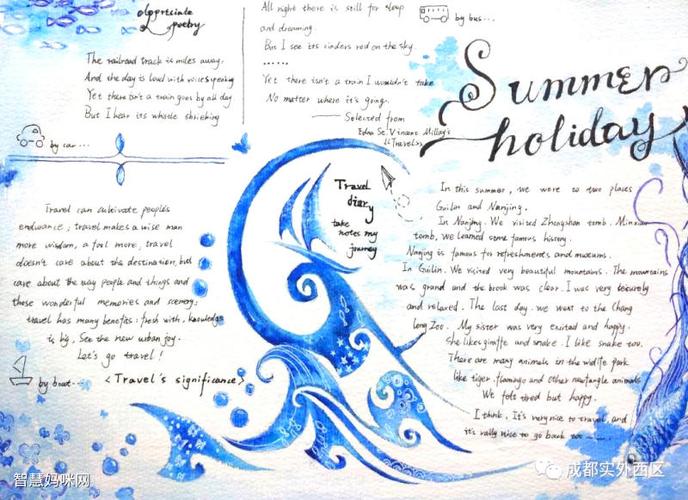 Appreciate
poetry
The railroad track is miles away,
And the day is loud with voices speaking
Yet there isn't a train goes by all day
But I hear its whistle shrieking
All right there is still for sleep
and dreaming.
But I see its cinders red on the sky.
......
Yet there isn't a train I wouldn't take
No matter where it's going.
—— Selected from
Edna St. Vincent Millay's
《Travel》
by bus...
by car...
Summer
holiday
Travel can cultivate people's
endurance; travel makes a wise man
more wisdom, a fool more, travel
doesn't care about the destination, but
care about the way people and things and
those wonderful memories and scenery;
travel has many benefits: fresh with, knowledge
is big, See the new urban joy.
Let's go travel!
by boat...
<Travel's significance>
Travel
diary
take
notes my
journey
In this summer, we were to two places
Guilin and Nanjing.
In Nanjing. We visited Zhongshan tomb. Minxiao
tomb, we learned some famous history.
Nanjing is famous for refreshments and museums.
In Guilin. We visited very beautiful mountains. The mountains
was grand and the brook was clear. I was very leisurely
and relaxed. The last day. we went to the Chang
long Zoo. My sister was very excited and happy.
She likes giraffe and snake. I like snake too.
There are many animals in the wildlife park
like tiger. flamingo and other animals
We felt tired but happy.
I think, It's very nice to travel, and
it's really nice to go back too
智慧妈咪网
成都实外西区